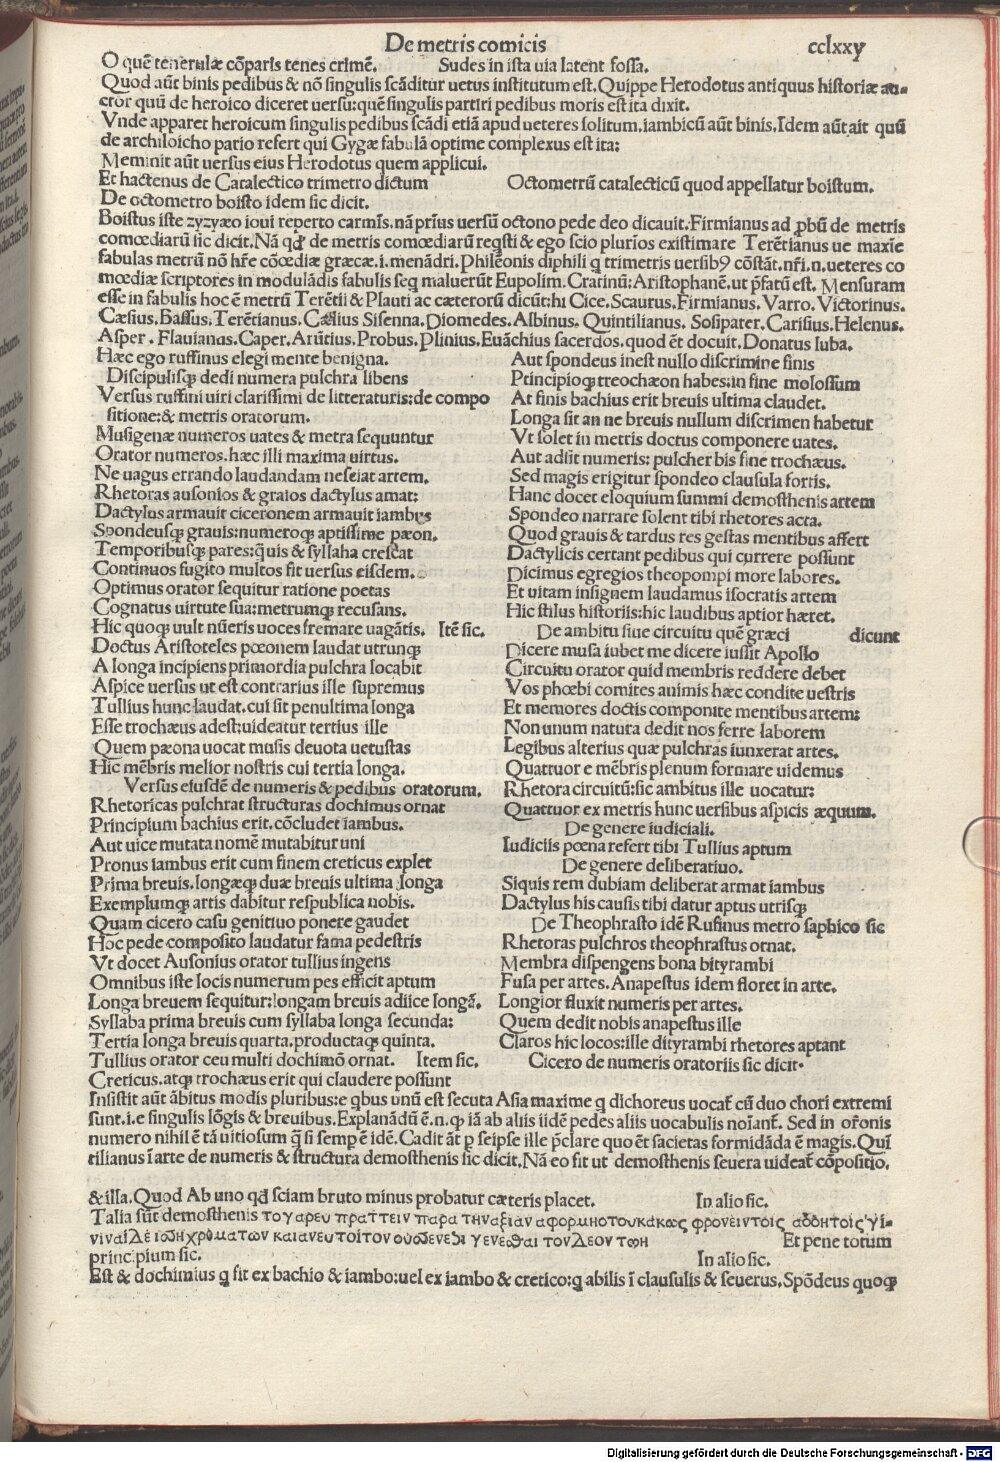 De metris comicis
cclxxv
O quē tenerulæ cōparis tenes crimē. Sudes in ista uia latent fossa.
Quod aūt binis pedibus & nō singulis scāditur uetus institutum est. Quippe Herodotus antiquus historiæ au-
ctor quū de heroico diceret uersu: quē singulis partiri pedibus moris est ita dixit.
Vnde apparet heroicum singulis pedibus scādi etiā apud ueteres solitum. iambicū aūt binis. Idem aūt ait quū
de archiloicho pario refert qui Gygæ fabulā optime complexus est ita:
Meminit aūt uersus eius Herodotus quem applicui.
Et hactenus de Catalectico trimetro dictum
Octometrū catalecticū quod appellatur boistum.
De octometro boisto idem sic dicit.
Boistus iste zyzyæo ioui reperto carmīs. nā prīus uersū octono pede deo dicauit. Firmianus ad ꝓbū de metris
comœdiarū sic dicit. Nā qđ de metris comœdiarū reqsti & ego scio plurios existimare Terētianus ue maxīe
fabulas metrū nō hr̄e cōœdiæ græcæ. i. menādri. Philēonis diphili q trimetris uersib9 cōstāt. nr̄i. n. ueteres co
mœdiæ scriptores in modulādis fabulis seq maluerūt Eupolim. Cratinū: Aristophanē. ut p̄fatū est. Mensuram
esse in fabulis hoc ē metrū Terētii & Plauti ac cæterorū dicūt: hi Cice. Scaurus. Firmianus. Varro. Victorinus.
Cæsius. Bassus. Terētianus. Cælius Sisenna. Diomedes. Albinus. Quintilianus. Sosipater. Carisius. Helenus.
Asper. Flauianus. Caper. Arūtius. Probus. Plinius. Euāchius sacerdos. quod ēt docuit. Donatus Iuba.
Hæc ego ruffinus elegi mente benigna.
Discipulisq; dedi numera pulchra libens
Versus ruffini uiri clarissimi de litteraturis: de compo
sitione: & metris oratorum.
Musigenæ numeros uates & metra sequuntur
Orator numeros. hæc illi maxima uirtus.
Ne uagus errando laudandam nesciat artem.
Rhetoras ausonios & graios dactylus amat:
Dactylus armauit ciceronem armauit iambus
Spondeusq; grauis: numeroq; aptissime pæon.
Temporibusq; pares: q̄uis & syllaba crescat
Continuos fugito multos fit uersus eisdem.
Optimus orator sequitur ratione poetas
Cognatus uirtute sua: metrumq; recusans.
Hic quoq; uult nūeris uoces fremare uagātis. Itē sic.
Doctus Aristoteles pœonem laudat utrunq;
A longa incipiens primordia pulchra locabit
Aspice uersus ut est contrarius ille supremus
Tullius hunc laudat. cui sit penultima longa
Esse trochæus adest: uideatur tertius ille
Quem pæona uocat musis deuota uetustas
Hic mēbris melior nostris cui tertia longa.
Versus eiusdē de numeris & pedibus oratorum.
Rhetoricas pulchrat structuras dochimus ornat
Principium bachius erit. cōcludet iambus.
Aut uice mutata nomē mutabitur uni
Pronus iambus erit cum finem creticus explet
Prima breuis. longæq; duæ breuis ultima longa
Exemplumq; artis dabitur respublica nobis.
Quam cicero casu genitiuo ponere gaudet
Hoc pede composito laudatur fama pedestris
Vt docet Ausonius orator tullius ingens
Omnibus iste locis numerum pes efficit aptum
Longa breuem sequitur: longam breuis adiice longā.
Syllaba prima breuis cum syllaba longa secunda:
Tertia longa breuis quarta. productaq; quinta.
Tullius orator ceu multi dochimō ornat. Item sic.
Creticus. atq; trochæus erit qui claudere possunt
Aut spondeus inest nullo discrimine finis
Principioq; treochæon habes: in fine molossum
At finis bachius erit breuis ultima claudet.
Longa sit an ne breuis nullum discrimen habetur
Vt solet in metris doctus componere uates.
Aut adsit numeris: pulcher bis fine trochæus.
Sed magis erigitur spondeo clausula fortis.
Hanc docet eloquium summi demosthenis artem
Spondeo narrare solent tibi rhetores acta.
Quod grauis & tardus res gestas mentibus affert
Dactylicis certant pedibus qui currere possunt
Dicimus egregios theopompi more labores.
Et uitam insignem laudamus isocratis artem
Hic stilus historiis: hic laudibus aptior hæret.
De ambitu siue circuitu quē græci dicunt
Dicere musa iubet me dicere iussit Apollo
Circuitu orator quid membris reddere debet
Vos phœbi comites animis hæc condite uestris
Et memores doctis componite mentibus artem:
Non unum natura dedit nos ferre laborem
Legibus alterius quæ pulchras iunxerat artes.
Quattuor e mēbris plenum formare uidemus
Rhetora circuitū: sic ambitus ille uocatur:
Quattuor ex metris hunc uersibus aspicis æquum.
De genere iudiciali.
Iudiciis pœna refert tibi Tullius aptum
De genere deliberatiuo.
Siquis rem dubiam deliberat armat iambus
Dactylus his causis tibi datur aptus utrisq;
De Theophrasto idē Rufinus metro saphico sic
Rhetoras pulchros theophrastus ornat.
Membra dispengens bona bityrambi
Fusa per artes. Anapestus idem floret in arte.
Longior fluxit numeris per artes.
Quem dedit nobis anapestus ille
Claros hic locos: ille dityrambi rhetores aptant
Cicero de numeris oratoriis sic dicit.
Insistit aut ābitus modis pluribus: e qbus unū est secuta Asia maxime q dichoreus uocat̄ cū duo chori extremi
sunt. i. e singulis lōgis & breuibus. Explanādū ē. n. qꝫ iā ab aliis iidē pedes aliis uocabulis noīant̄. Sed in or̄onis
numero nihil ē tā uitiosum q̄ si semp ē idē. Cadit āt p seipse ille p̄clare quo ēt sacietas formidāda ē magis. Quī
tilianus ī arte de numeris & structura demosthenis sic dicit. Nā eo fit ut demosthenis seuera uideat̄ cōpositio.
& illa. Quod Ab uno qđ sciam bruto minus probatur cæteris placet. In alio sic.
Talia sūt demosthenis τογαρευ πραττειν παρα τηναξιαν αφορμητουκακως φρονειντοις αδοητοις γι-
principium sic. Et pene totum
In alio sic.
Est & dochimius q fit ex bachio & iambo: uel ex iambo & cretico: q abilis ī clausulis & seuerus. Spōdeus quoq;
Digitalisierung gefördert durch die Deutsche Forschungsgemeinschaft - DFG